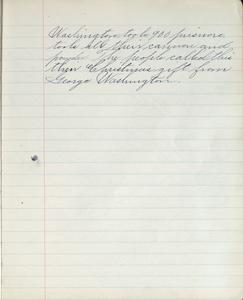 Washington took 900 prisoners
took all their cannon and
powder. The people called this
their Christmas gift from
George Washington.